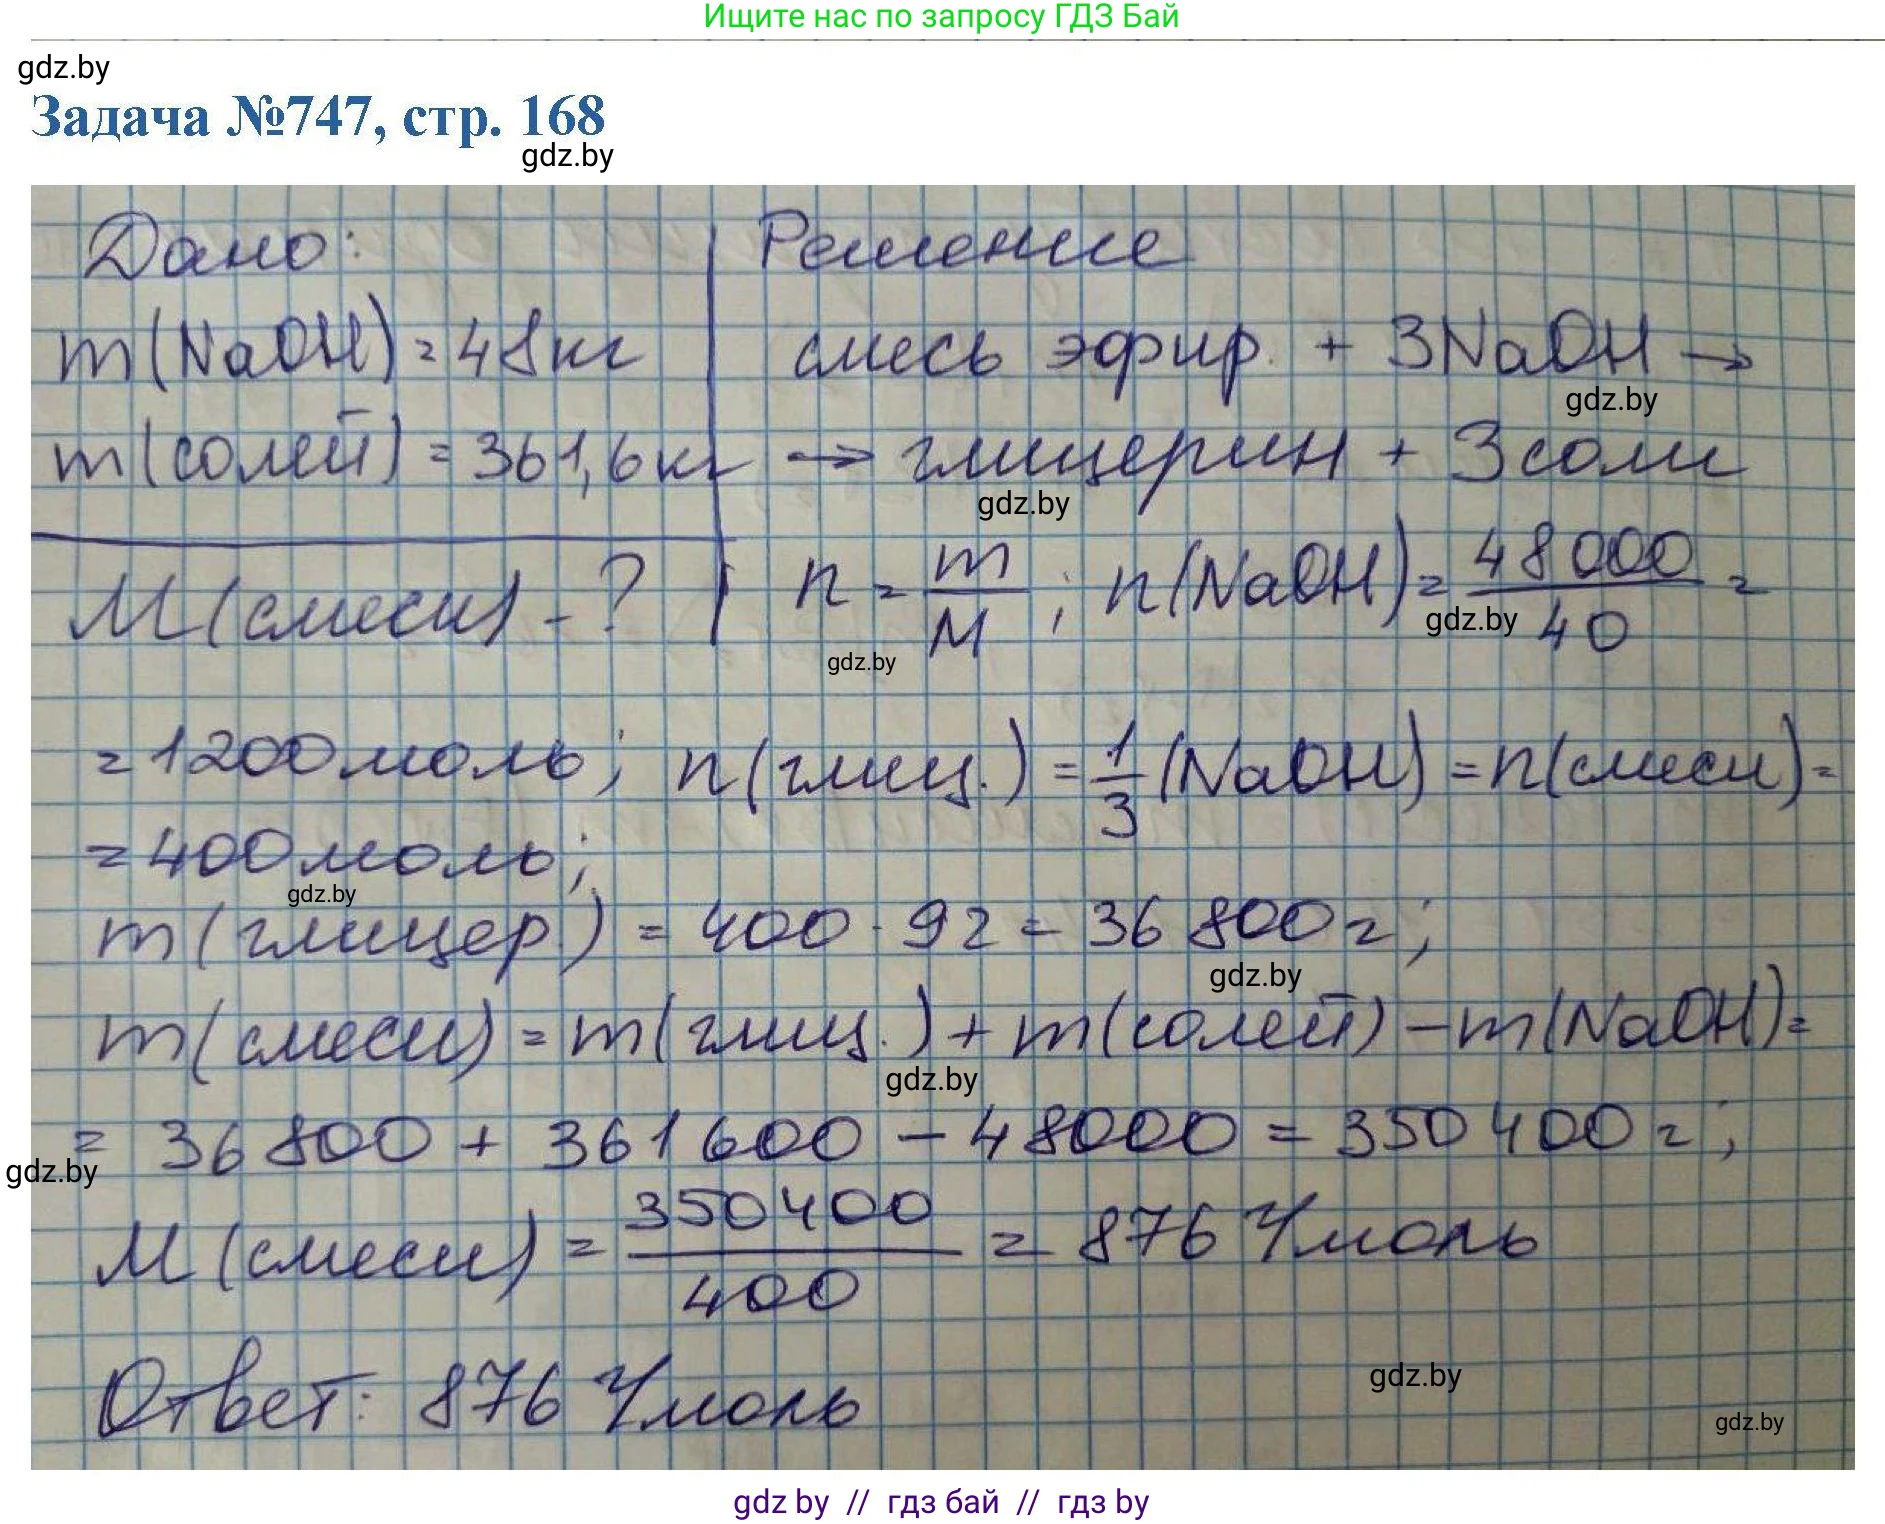 Ищите нас по запросу ГДЗ Бай
gdz.by
Задача №747, стр. 168
gdz.by
Дано:
Решение
m(NaOH) = 48кг
смесь эфир. + 3NaOH →
gdz.by
m(солей) = 361,6кг
→ глицерин + 3соли
gdz.by
M(смеси) - ?
n = m/M ; n(NaOH) = 48000/40 =
gdz.by
gdz.by
= 1200моль; n(глиц.) = 1/3 (NaOH) = n(смеси) =
= 400моль;
gdz.by
m(глицер.) = 400 · 92 = 36 800г;
gdz.by
m(смеси) = m(глиц.) + m(солей) - m(NaOH) =
gdz.by
= 36 800 + 361 600 - 48000 = 350 400г;
gdz.by
M(смеси) = 350400/400 = 876 г/моль
Ответ: 876 г/моль
gdz.by
gdz.by
gdz by // гдз бай // гдз by